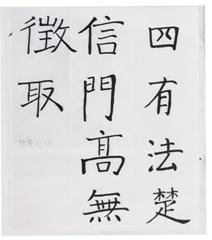 四有法楚
信門髙無
徵取